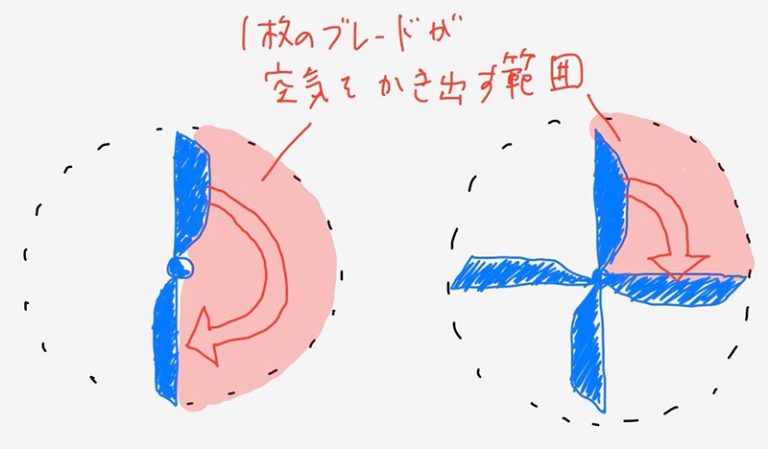 1枚のブレードが
空気をかき出す範囲